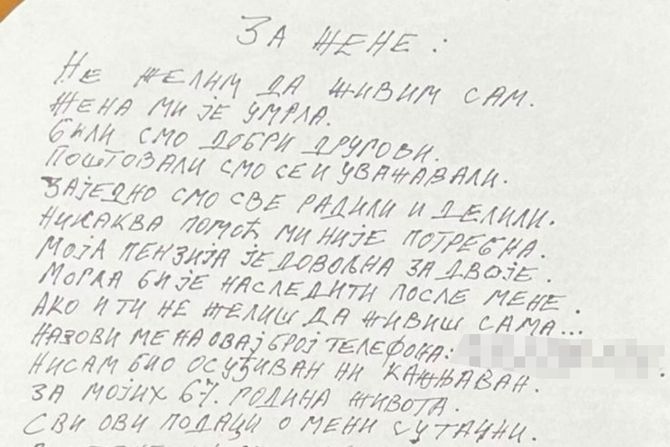 ЗА ЖЕНЕ:
НЕ ЖЕЛИМ ДА ЖИВИМ САМ.
ЖЕНА МИ ЈЕ УМРЛА.
БИЛИ СМО ДОБРИ ДРУГОВИ.
ПОШТОВАЛИ СМО СЕ И УВАЖАВАЛИ.
ЗАЈЕДНО СМО СВЕ РАДИЛИ И ДЕЛИЛИ.
НИКАКВА ПОМОЋ МИ НИЈЕ ПОТРЕБНА.
МОЈА ПЕНЗИЈА ЈЕ ДОВОЉНА ЗА ДВОЈЕ.
МОГЛА БИ ЈЕ НАСЛЕДИТИ ПОСЛЕ МЕНЕ.
АКО И ТИ НЕ ЖЕЛИШ ДА ЖИВИШ САМА...
НАЗОВИ МЕ НА ОВАЈ БРОЈ ТЕЛЕФОНА:
НИСАМ БИО ОСУЂИВАН НИ КАЖЊАВАН.
ЗА МОЈИХ 67. ГОДИНА ЖИВОТА.
СВИ ОВИ ПОДАЦИ О МЕНИ СУ ТАЧНИ.